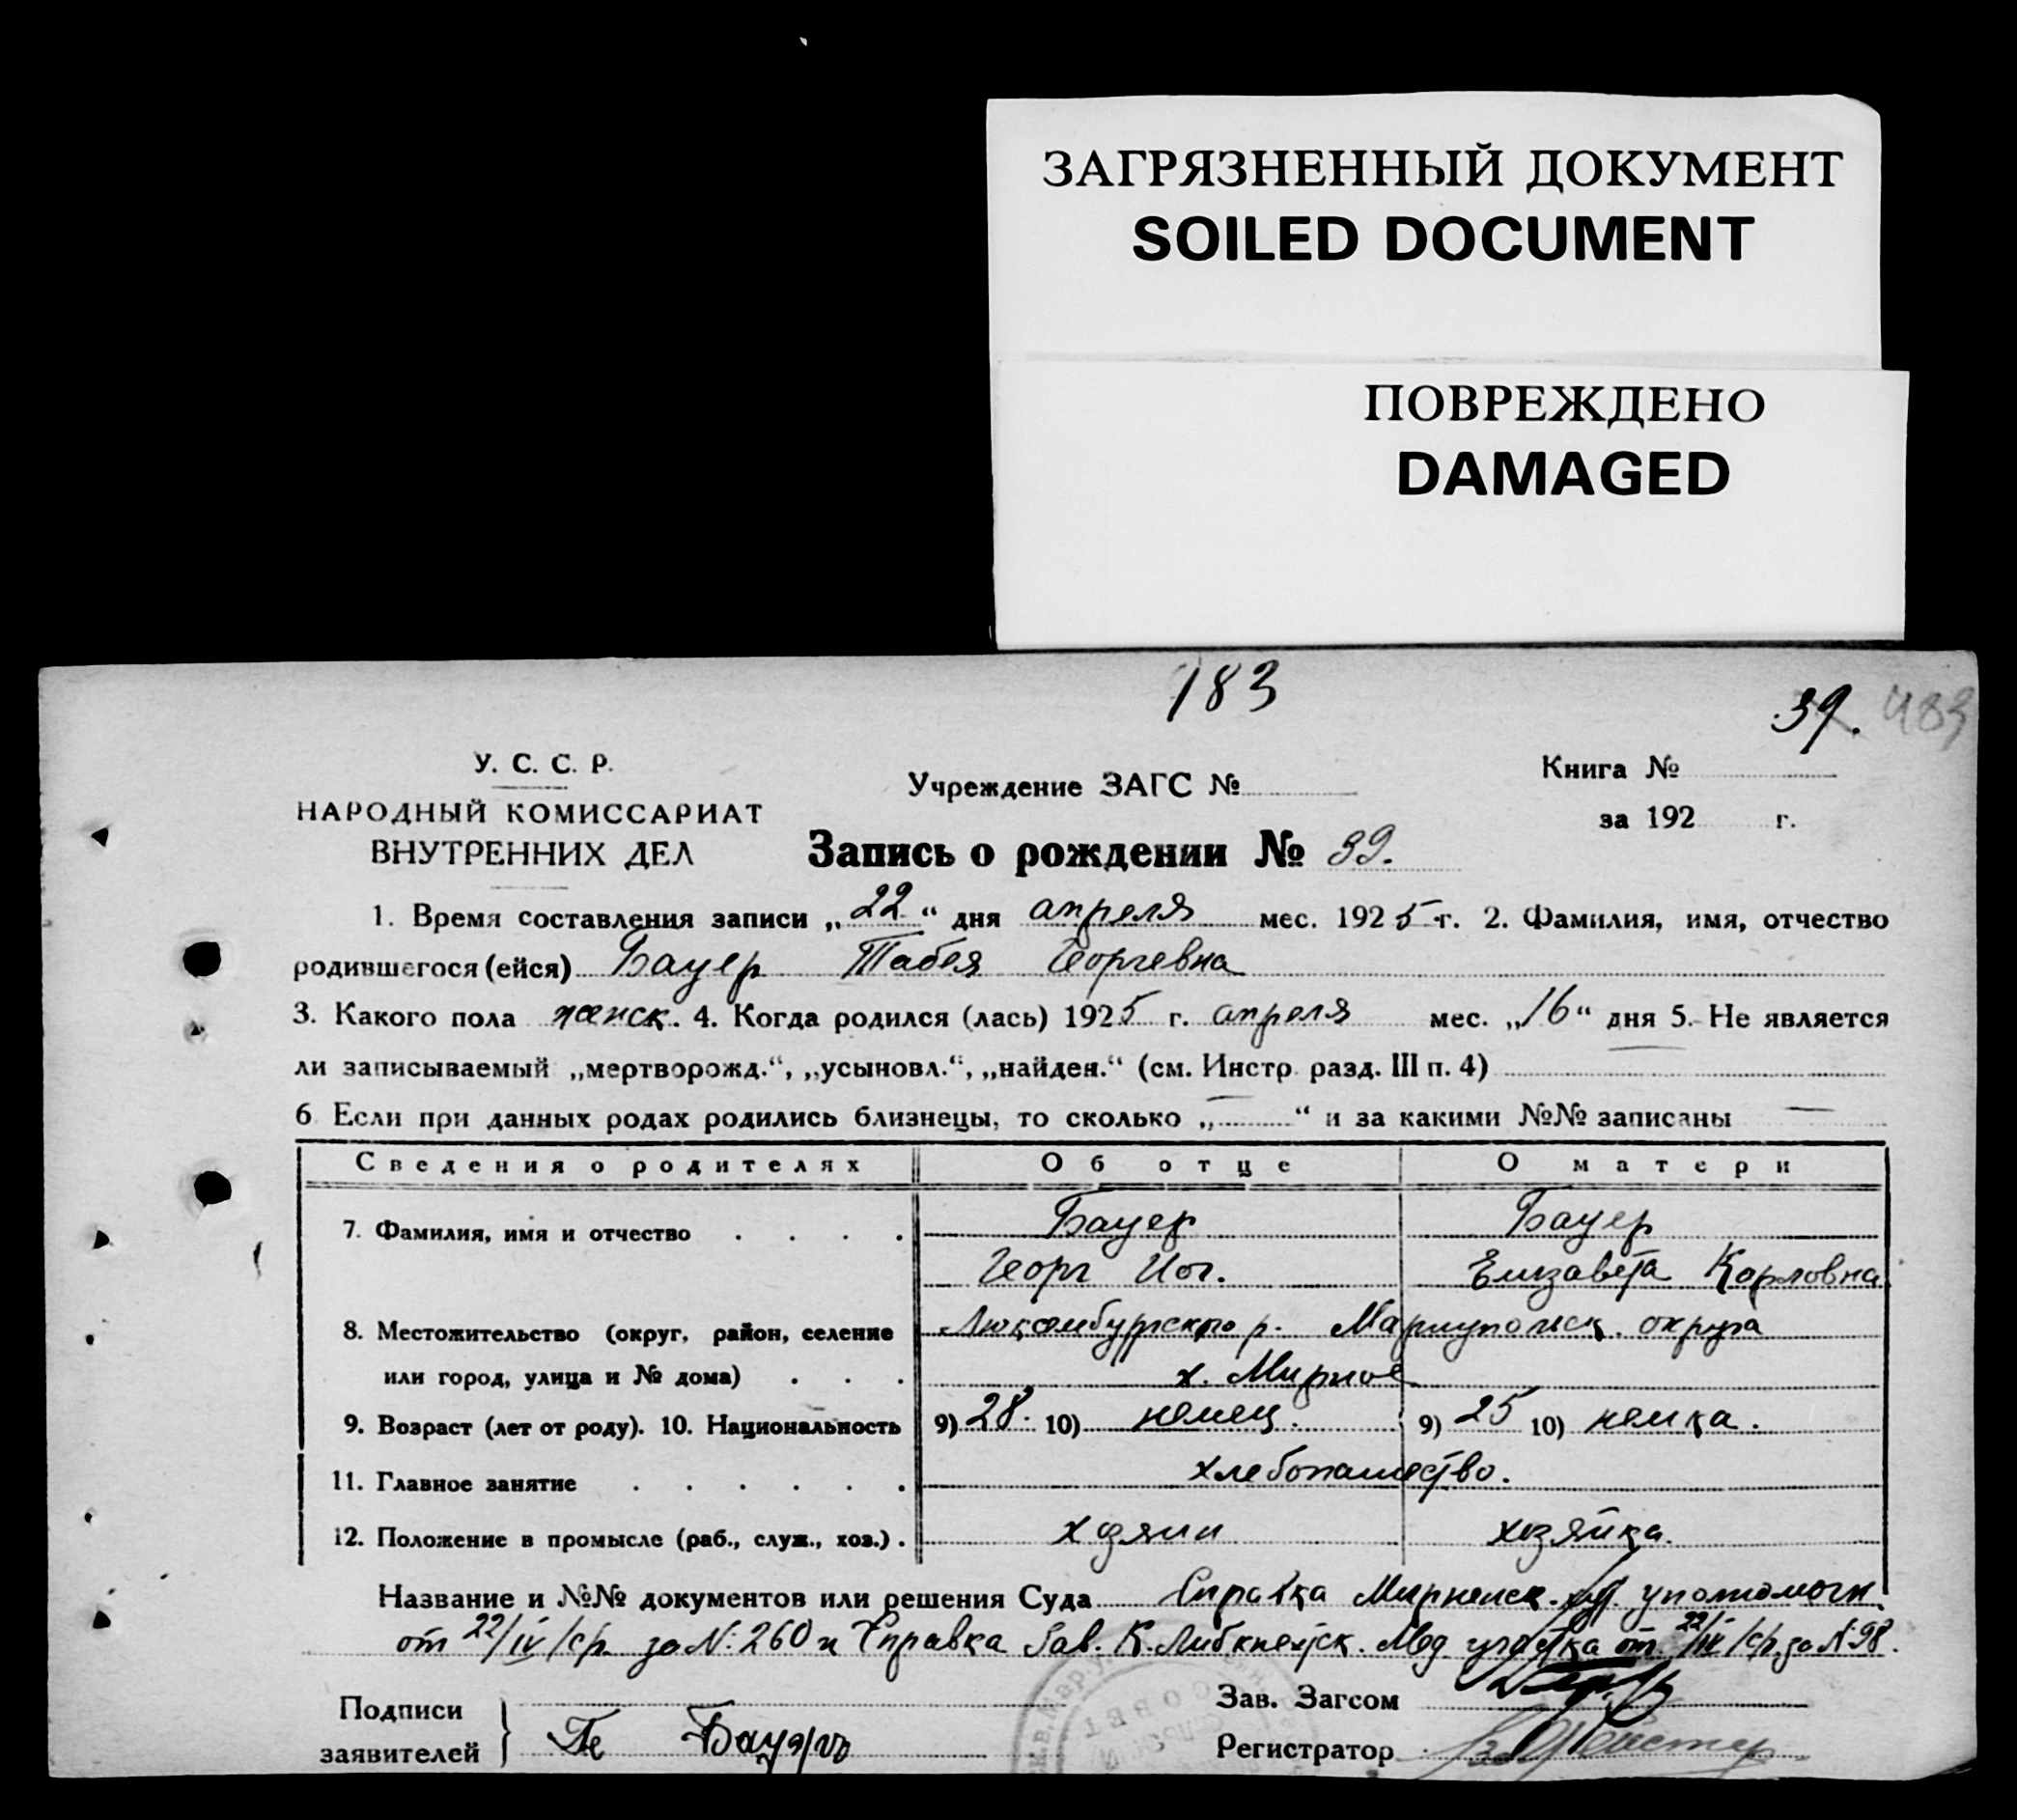 ЗАГРЯЗНЕННЫЙ ДОКУМЕНТ
SOILED DOCUMENT
ПОВРЕЖДЕНО
DAMAGED
183
39. 483
У. С. С. Р.
НАРОДНЫЙ КОМИССАРИАТ
ВНУТРЕННИХ ДЕЛ
Учреждение ЗАГС №
Книга №
за 192 г.
Запись о рождении № 39.
1. Время составления записи „22“ дня апреля мес. 1925 г. 2. Фамилия, имя, отчество
родившегося (ейся) Бауер Табея Георгевна
3. Какого пола женск. 4. Когда родился (лась) 1925 г. апреля мес. „16“ дня 5. Не является
ли записываемый „мертворожд.“, „усыновл.“, „найден.“ (см. Инстр. разд. III п. 4)
6 Если при данных родах родились близнецы, то сколько „—“ и за какими №№ записаны —
Сведения о родителях Об отце О матери
7. Фамилия, имя и отчество . . . . Бауер Бауер
Георг Иог. Елизавета Карловна
8. Местожительство (округ, район, селение Люксембургского р. Мариупольск. округа
или город, улица и № дома) . . . х. Мирное
9. Возраст (лет от роду). 10. Национальность 9) 28. 10) немец. 9) 25 10) немка.
11. Главное занятие . . . . . . хлебопашество.
12. Положение в промысле (раб., служ., хоз.) . хозяин хозяйка.
Название и №№ документов или решения Суда Справка Мирненск. уполномоч.
от 22/IV/с/р. за №: 260 и Справка Зав. К. Либкнехтск. Мед. участка от 22/IV/с/р. за № 98.
Подписи
заявителей
Ге Бауэръ
Зав. Загсом
Регистратор